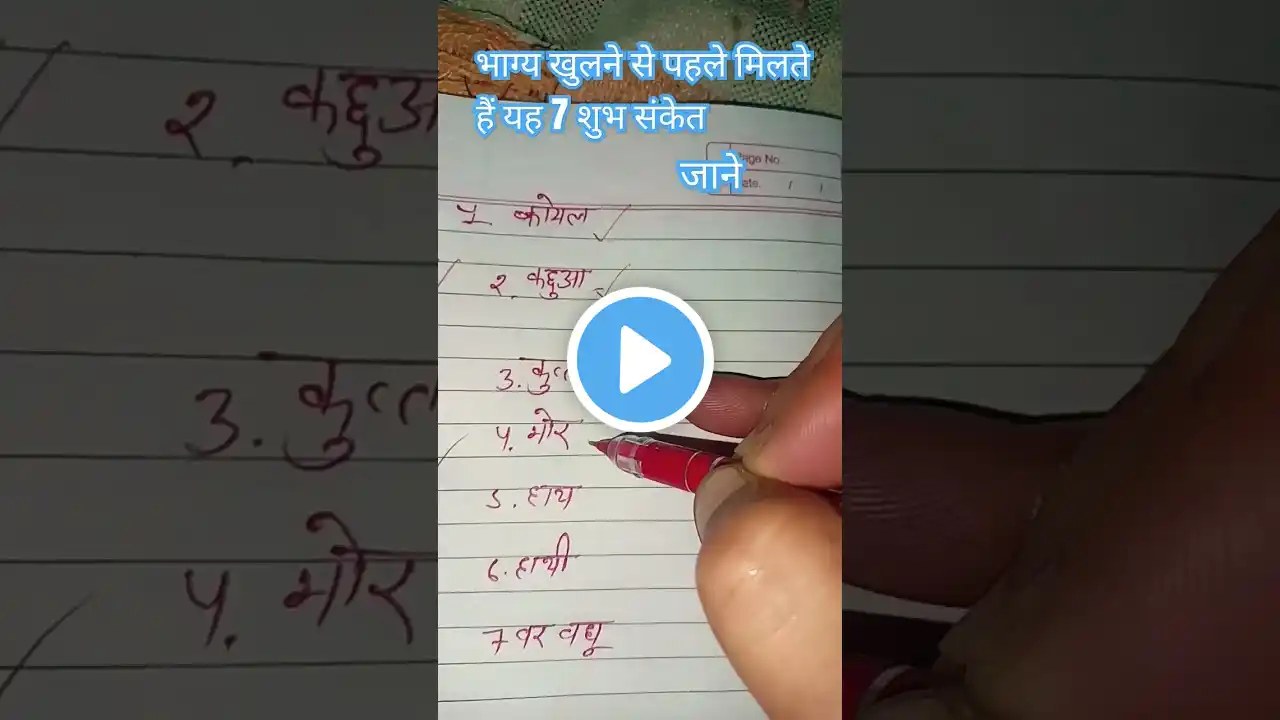 भाग्य खुलने से पहले मिलते
हैं यह 7 शुभ संकेत
जाने
Page No
Date. / /
1 कोयल
२. कद्दुआ
3.
4. मोर
5. हाथ
6. हाथी
7 वर वधू